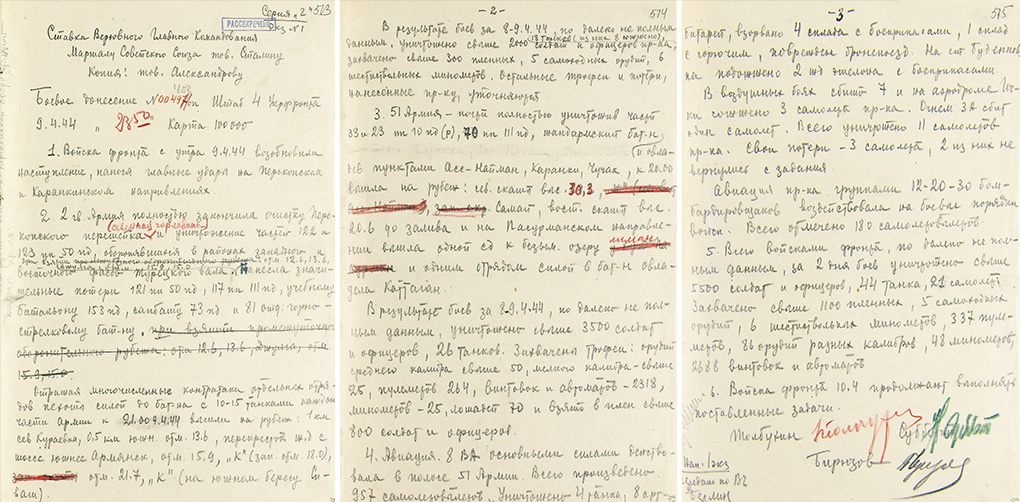 Серия "2" 573
РАССЕКРЕЧЕНО
Экз. №1
Ставка Верховного Главного Командования
Маршалу Советского Союза тов. Сталину
Копия: тов. Александрову
Боевое донесение № 00497/оп Штаб 4 Укрфронта
9.4.44 " 23 50 " Карта 100000
1. Войска фронта с утра 9.4.44 возобновили
наступление, нанося главные удары на Перекопском
и Каранкинском направлениях.
2. 2 гв. Армия полностью закончила очистку Пере-
копского перешейка и уничтожение частей 122 и
123 пп 50 пд, оборонявшихся в районах западнее,
восточнее Турецкого вала. Нанесла значи-
тельные потери 121 пп 50 пд, 117 пп 111 пд, учебному
батальону 153 пд, сапбату 73 пд и 81 отд. горно-
стрелковому бат-ну, при взятии промежуточного
оборонительного рубежа: отм. 12.6, 13.6, отм.
15.9, 15.0.
Отражая многочисленные контратаки отдельных отря-
дов пехоты силой до бат-на с 10-15 танками каждый
части Армии к 21.00 9.4.44 вышли на рубеж: 1 км
сев. Кураевка, 0,5 км южн. отм. 13.6, перекресток ж.д с
шоссе южнее Армянск, отм. 15.9, "К" (зап. отм. 18.0),
отм. 21.7, "К" (на южном берегу Си-
ваш).
- 2 - 574
В результате боев за 8-9.4.44 по далеко не полным
данным, уничтожено свыше 2000 солдат и офицеров пр-ка,
18 танков (из них 8 сожжено)
захвачено свыше 300 пленных, 5 самоходных орудий, 6
шестиствольных минометов. Остальные трофеи и потери,
нанесенные пр-ку, уточняются.
3. 51 Армия - почти полностью уничтожив части
33 и 23 пп 10 пд(р), 70 пп 111 пд, жандармский бат-н,
и овла-
дев пунктами Асс-Найман, Каранки, Чучак, к 20.00
вышла на рубеж: сев. скаты выс. 30,3,
Самай, вост. скаты выс.
20.6 до залива и на Пасурманском направле-
нии вышла одной сд к безым. озеру
и одним отрядом силой в бат-н овла-
дела Каттаган.
В результате боев за 8-9.4.44, по далеко не пол-
ным данным, уничтожено свыше 3500 солдат
и офицеров, 26 танков. Захвачены трофеи: орудий
среднего калибра свыше 50, мелкого калибра - свыше
25, пулеметов 264, винтовок и автоматов - 2318,
минометов - 25, лошадей 70 и взято в плен свыше
800 солдат и офицеров.
4. Авиация. 8 ВА основными силами действо-
вала в полосе 51 Армии. Всего произведено
957 самолетовылетов. Уничтожено 4 танка, 8 арт-
- 3 - 575
батарей, взорвано 4 склада с боеприпасами, 1 склад
с горючим, поврежден бронепоезд. На ст. Буденнов-
ка подожжено 2 жд эшелона с боеприпасами.
В воздушных боях сбит 7 и на аэродроме Ич-
ки сожжено 3 самолета пр-ка. Огнем ЗА сбит
один самолет. Всего уничтожено 11 самолетов
пр-ка. Свои потери - 3 самолета, 2 из них не
вернулись с задания.
Авиация пр-ка группами 12-20-30 бом-
бардировщиков воздействовала на боевые порядки
войск. Всего отмечено 180 самолетовылетов.
5. Всего войсками фронта, по далеко не пол-
ным данным, за 2 дня боев уничтожено свыше
5500 солдат и офицеров, 44 танка, 21 самолет.
Захвачено свыше 1100 пленных, 5 самоходных
орудий, 6 шестиствольных минометов, 337 пуле-
метов, 86 орудий разных калибров, 48 минометов,
2688 винтовок и автоматов
6. Войска фронта 10.4 продолжают выполнять
поставленные задачи.
Толбухин
Бирюзов